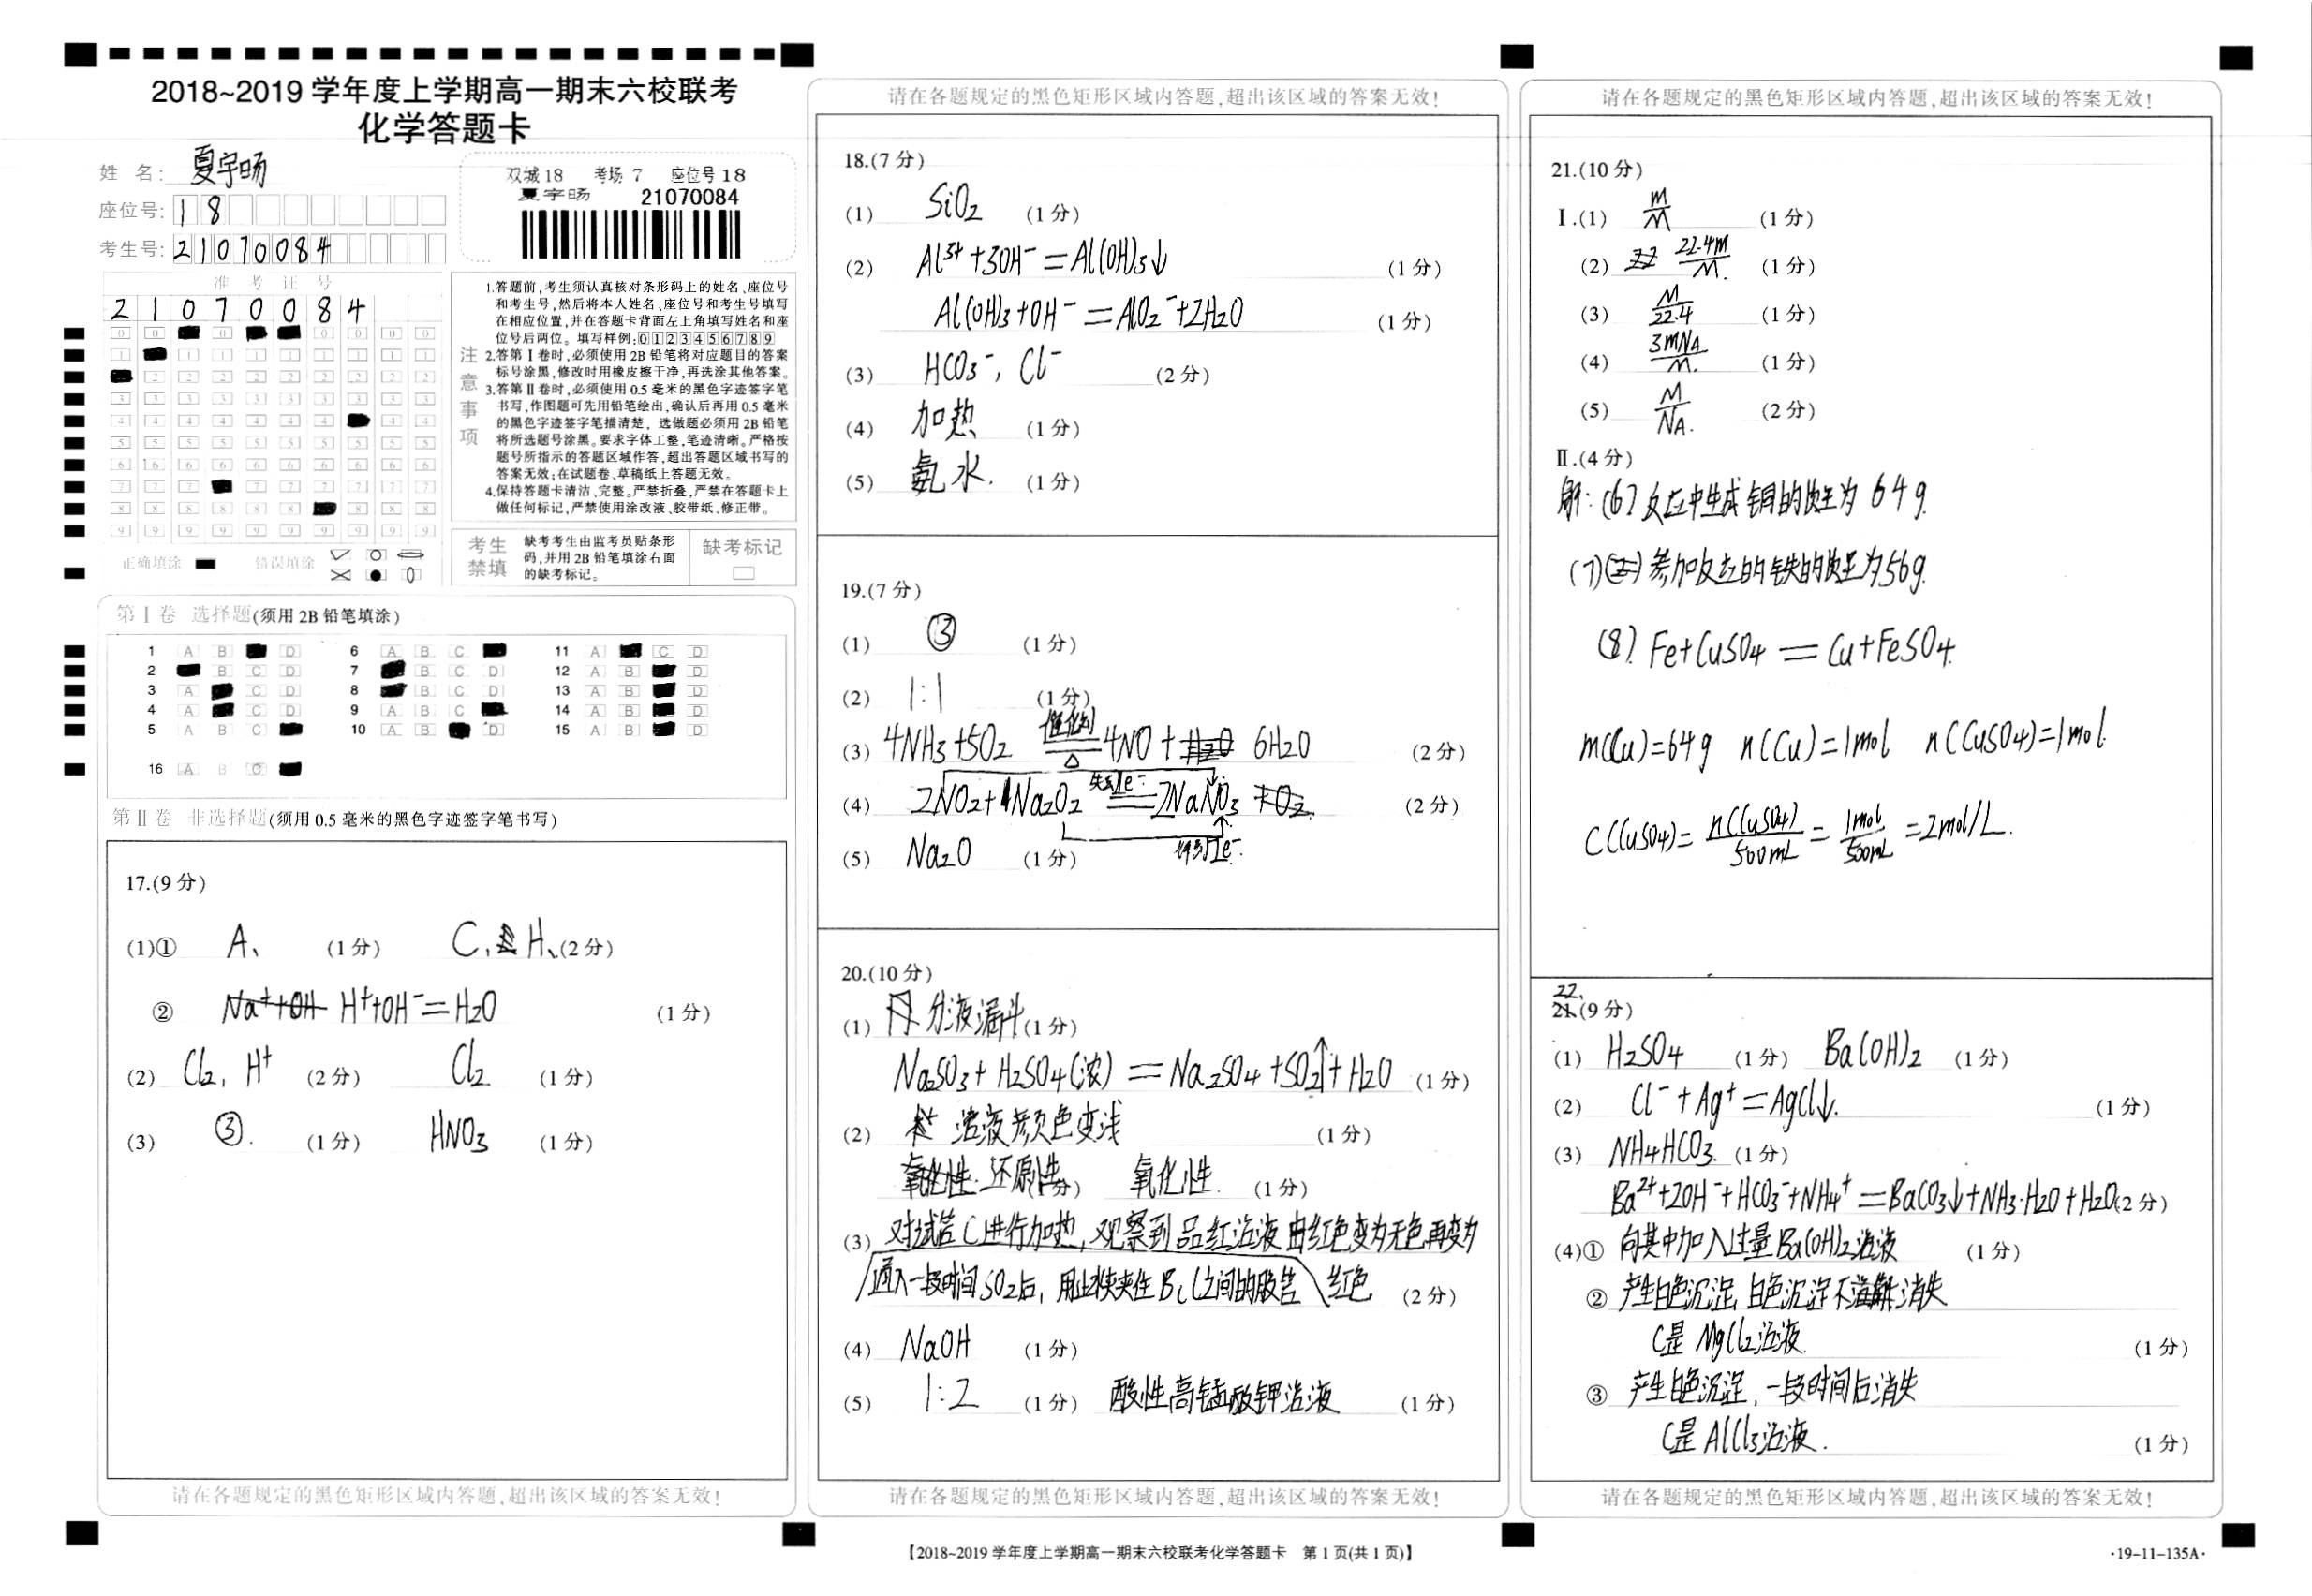 2018~2019 学年度上学期高一期末六校联考
化学答题卡
姓 名: 夏宇旸
座位号: 1 8
考生号: 2 1 0 7 0 0 8 4
准 考 证 号
2 1 0 7 0 0 8 4
正确填涂 错误填涂
双城18 考场 7 座位号 18
夏宇旸 21070084
注意事项
1.答题前,考生须认真核对条形码上的姓名、座位号
和考生号,然后将本人姓名、座位号和考生号填写
在相应位置,并在答题卡背面左上角填写姓名和座
位号后两位。填写样例:0123456789
2.答第Ⅰ卷时,必须使用2B铅笔将对应题目的答案
标号涂黑,修改时用橡皮擦干净,再选涂其他答案。
3.答第Ⅱ卷时,必须使用0.5毫米的黑色字迹签字笔
书写,作图题可先用铅笔绘出,确认后再用0.5毫米
的黑色字迹签字笔描清楚, 选做题必须用2B铅笔
将所选题号涂黑。要求字体工整,笔迹清晰。严格按
题号所指示的答题区域作答,超出答题区域书写的
答案无效;在试题卷、草稿纸上答题无效。
4.保持答题卡清洁、完整。严禁折叠,严禁在答题卡上
做任何标记,严禁使用涂改液、胶带纸、修正带。
考生禁填
缺考考生由监考员贴条形
码,并用2B铅笔填涂右面
的缺考标记。
缺考标记
第Ⅰ卷 选择题(须用2B铅笔填涂)
1 A B D 6 A B C 11 A C D
2 B C D 7 B C D 12 A B D
3 A C D 8 B C D 13 A B D
4 A C D 9 A B C 14 A B D
5 A B C 10 A B D 15 A B D
16 A B C
第Ⅱ卷 非选择题(须用0.5毫米的黑色字迹签字笔书写)
17.(9分)
(1)① A、 (1分) C、H、(2分)
② Na⁺+OH H⁺+OH⁻=H₂O (1分)
(2) Cl₂, H⁺ (2分) Cl₂ (1分)
(3) ③. (1分) HNO₃ (1分)
请在各题规定的黑色矩形区域内答题,超出该区域的答案无效!
请在各题规定的黑色矩形区域内答题,超出该区域的答案无效!
18.(7分)
(1) SiO₂ (1分)
(2) Al³⁺+3OH⁻=Al(OH)₃↓ (1分)
Al(OH)₃+OH⁻=AlO₂⁻+2H₂O (1分)
(3) HCO₃⁻, Cl⁻ (2分)
(4) 加热 (1分)
(5) 氨水. (1分)
19.(7分)
(1) ③ (1分)
(2) 1:1 (1分)
(3) 4NH₃+5O₂ 催化剂 = △ 4NO+H₂O 6H₂O (2分)
(4) 2NO₂+Na₂O₂ 失去1e⁻ = 2NaNO₃ +O₂ (2分)
(5) Na₂O (1分) 得到1e⁻.
20.(10分)
(1) 分液漏斗(1分)
Na₂SO₃+H₂SO₄(浓)=Na₂SO₄+SO₂↑+H₂O (1分)
(2) 溶液颜色变浅 (1分)
氧化性. 还原性(1分) 氧化性. (1分)
(3) 对试管C进行加热,观察到品红溶液由红色变为无色再变为
通入一段时间SO₂后,用止水夹夹住B、C之间的胶管 红色 (2分)
(4) NaOH (1分)
(5) 1:2 (1分) 酸性高锰酸钾溶液 (1分)
请在各题规定的黑色矩形区域内答题,超出该区域的答案无效!
请在各题规定的黑色矩形区域内答题,超出该区域的答案无效!
21.(10分)
Ⅰ.(1) m/M (1分)
(2) 22.4m/M. (1分)
(3) M/22.4 (1分)
(4) 3mNA/M. (1分)
(5) M/NA. (2分)
Ⅱ.(4分)
解:(6)反应中生成铜的质量为64g.
(7)(2)参加反应的铁的质量为56g.
(8). Fe+CuSO₄=Cu+FeSO₄.
m(Cu)=64g n(Cu)=1mol n(CuSO₄)=1mol.
C(CuSO₄)=n(CuSO₄)/500mL=1mol/500mL=2mol/L.
22.
21.(9分)
(1) H₂SO₄ (1分) Ba(OH)₂ (1分)
(2) Cl⁻+Ag⁺=AgCl↓. (1分)
(3) NH₄HCO₃. (1分)
Ba²⁺+2OH⁻+HCO₃⁻+NH₄⁺=BaCO₃↓+NH₃·H₂O+H₂O(2分)
(4)① 向其中加入过量Ba(OH)₂溶液 (1分)
② 产生白色沉淀,白色沉淀不溶解消失
C是MgCl₂溶液. (1分)
③ 产生白色沉淀,一段时间后消失
C是AlCl₃溶液. (1分)
请在各题规定的黑色矩形区域内答题,超出该区域的答案无效!
【2018~2019 学年度上学期高一期末六校联考化学答题卡 第1页(共1页)】
·19-11-135A·